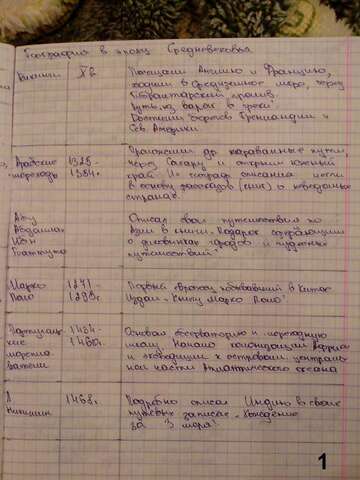 География в эпоху Средневековья
Викинги Xв. Посещали Англию и Францию,
ходили в Средиземное море, через
Гибралтарский пролив.
Путь из варяг в греки.
Достигли берегов Гренландии и
Сев. Америки.
Арабские мореходы 1325-
1354г. Проложили до караванные пути,
через Сахару и открыли южный
край
в основу рассказов о неведомых
странах.
Абу
Абдаллах
Ибн
Баттута Описал свои путешествия по
Азии в книги. Подарок созерцающим
о диковинках городов и чудесных
путешествий"
Марко
Поло 1271-
1295г. Первый европеец побывавший в Китае
Издал "Книгу Марко Поло"
Португальс
кие
морепла
ватели 1484-
1460г. Основал обсерваторию и мореходную
школу. Начало колонизации Африки
и экспедиции к островам централь
ной части Атлантического океана
А
Никитин 1468г. Подробно описал Индию в своих
путевых записях "Хождение
за 3 моря"
1